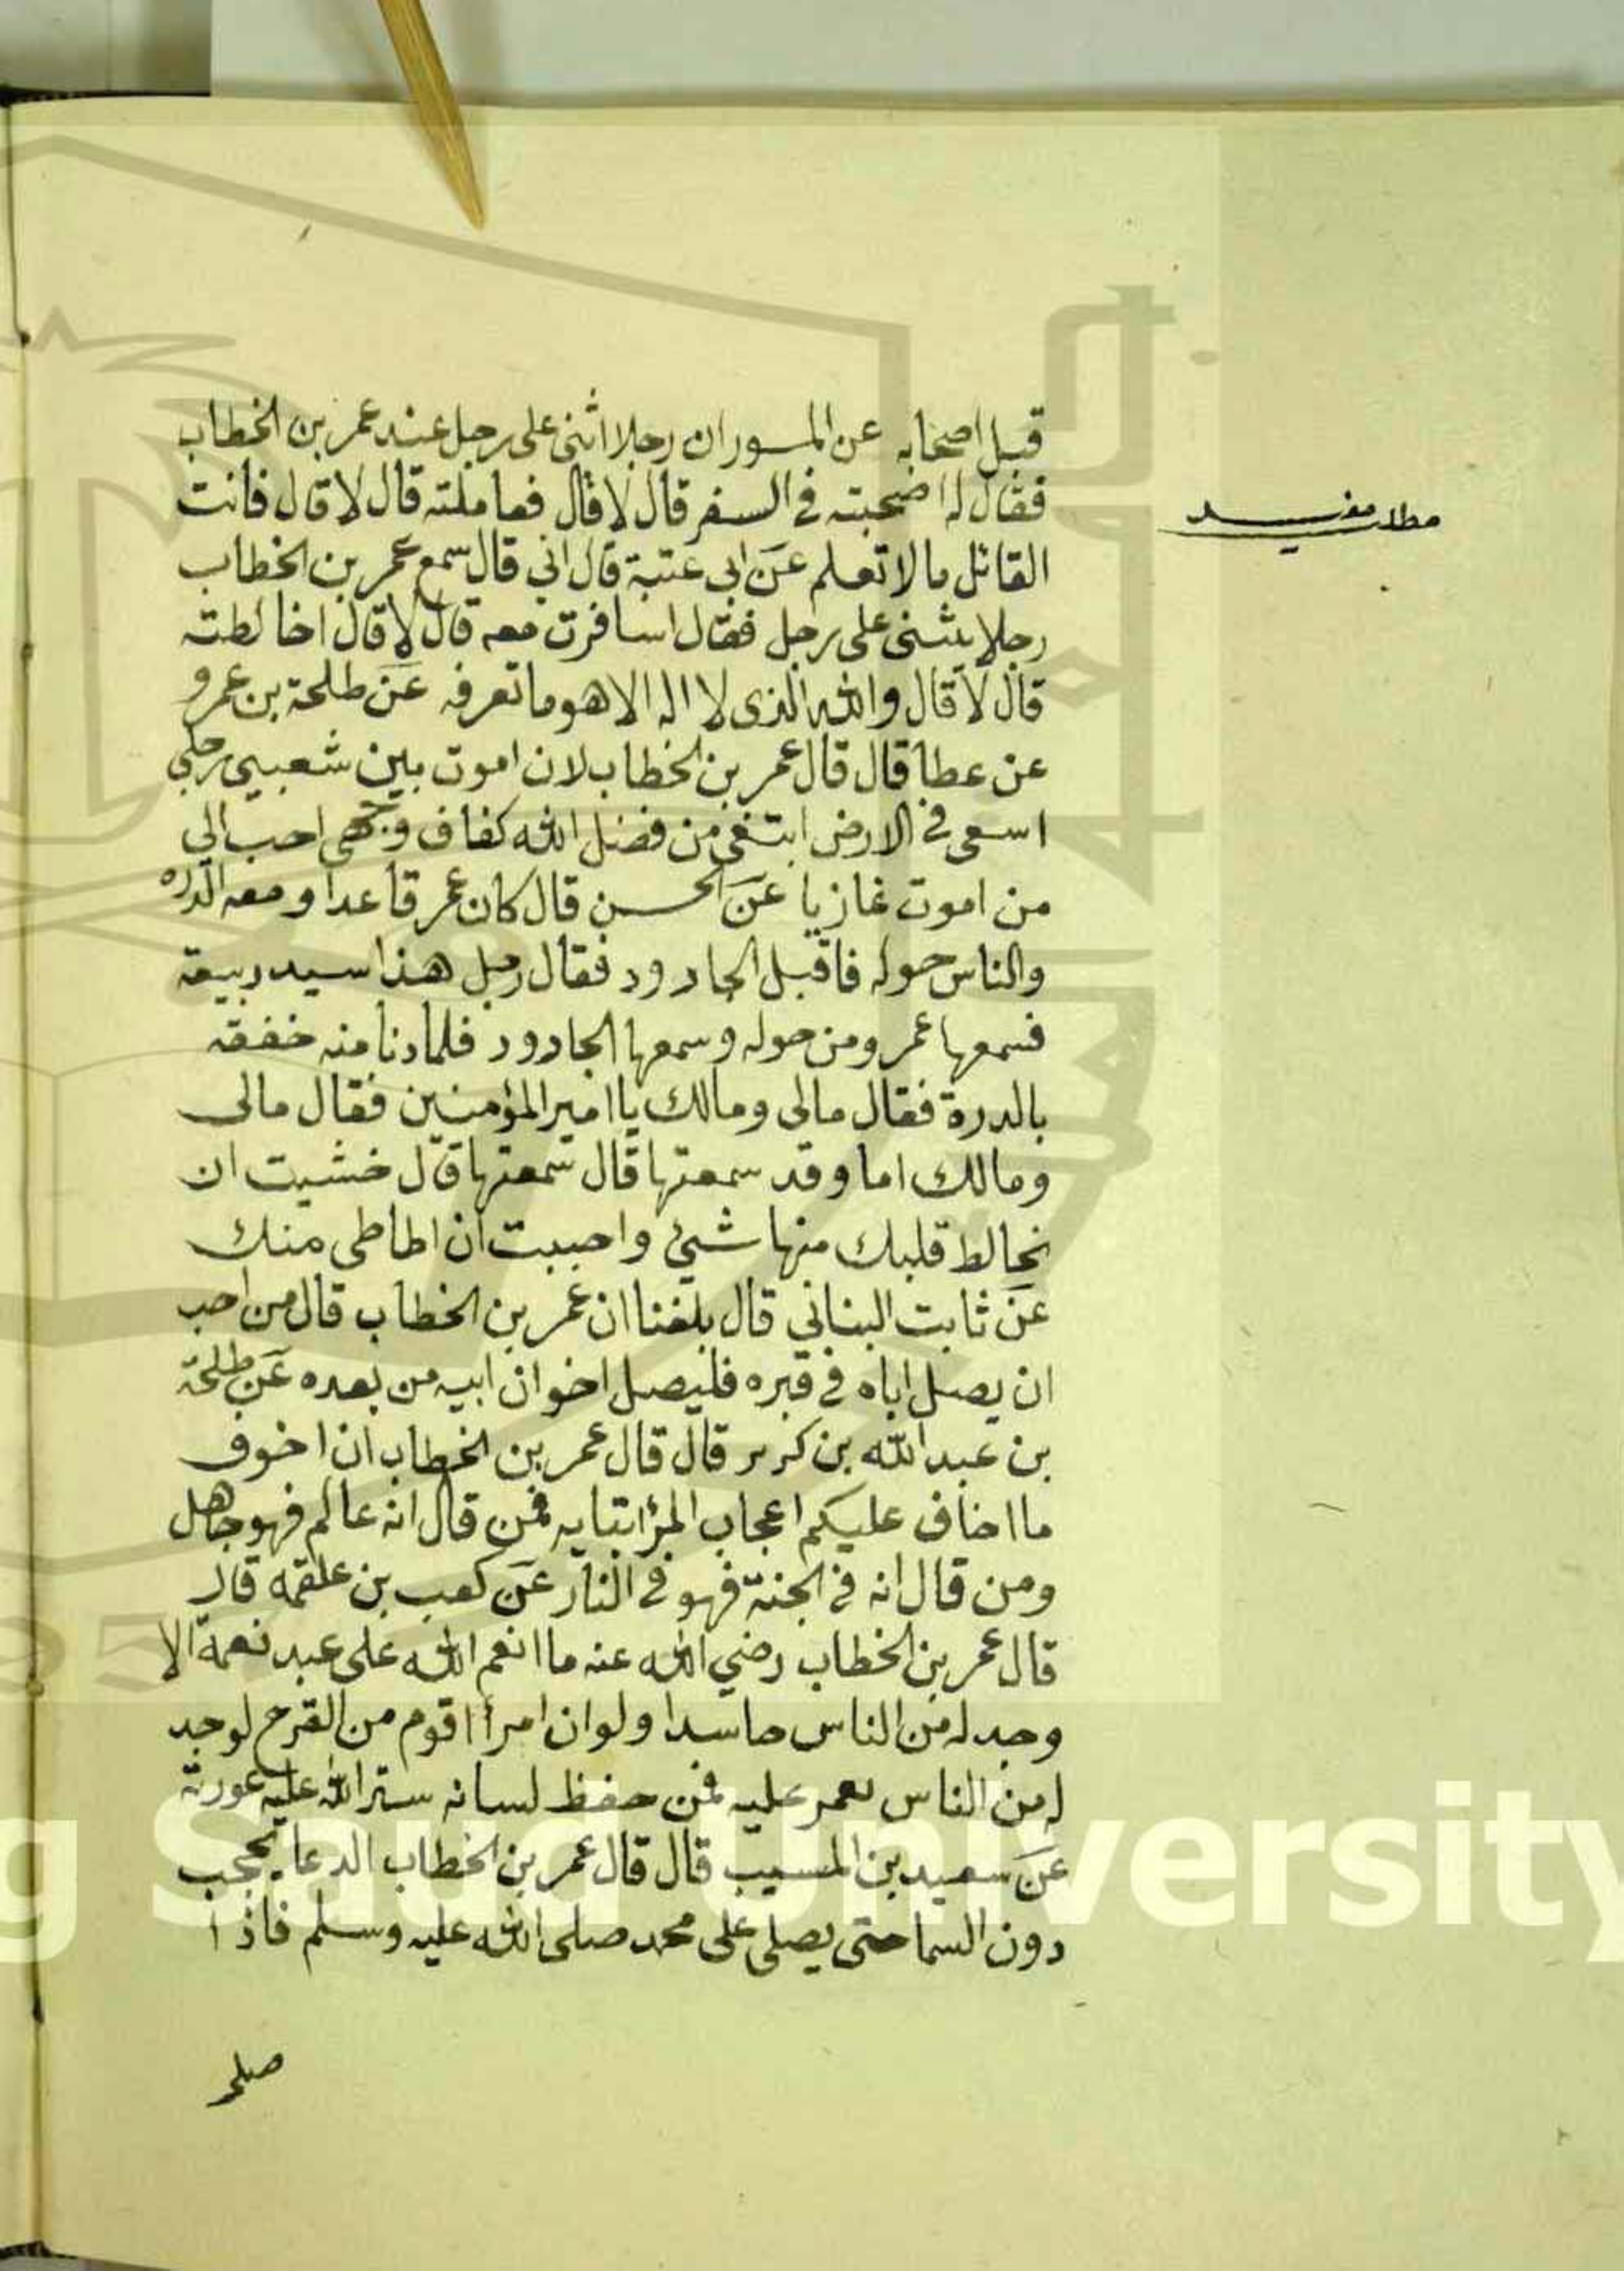 قبل اصحابه عن المسوران رجلا اثنى على رجل عند عمر بن الخطاب
فقال له اصحبته في السفر قال لا قال فعاملته قال لا قال فانت
القائل ما لا تعلم عن ابى عتبة قال اني قال سمع عمر بن الخطاب
رجلا يثنى على رجل فقال اسافرت معه قال لا قال اخالطته
قال لا قال والله الذى لا اله الا هو ما تعرفه عن طلحة بن عمرو
عن عطا قال قال عمر بن الخطاب لان اموت بين شعبيى رحلي
اسعى في الارض ابتغى من فضل الله كفاف وجهى احب الي
من اموت غازيا عن الحسن قال كان عمر قاعدا ومعه الدره
والناس حوله فاقبل الجارود فقال رجل هذا سيد ربيعة
فسمعها عمر ومن حوله وسمعها الجارود فلما دنا منه خفقه
بالدرة فقال مالى ومالك يا امير المؤمنين فقال مالى
ومالك اما وقد سمعتها قال سمعتها قال خشيت ان
يخالط قلبك منها شيئ واحببت ان اطاطى منك
عن ثابت البناني قال بلغنا ان عمر بن الخطاب قال من احب
ان يصل اباه في قبره فليصل اخوان ابيه من بعده عن طلحة
بن عبد الله بن كرير قال قال عمر بن الخطاب ان اخوف
ما اخاف عليكم اعجاب المرٔ بتايه فمن قال انه عالم فهو جاهل
ومن قال انه في الجنة فهو في النار عن كعب بن علقمه قال
قال عمر بن الخطاب رضي الله عنه ما انعم الله على عبد نعمة الا
وجد له من الناس حاسدا ولو ان امرأ اقوم من القرح لوجد
له من الناس عليه فمن حفظ لسانه ستر الله عليه عورته
عن سعيد بن المسيب قال قال عمر بن الخطاب الدعا يحجب
دون السما حتى يصلى على محمد صلى الله عليه وسلم فاذا
مطلب مفيد
صلى
g Saud University